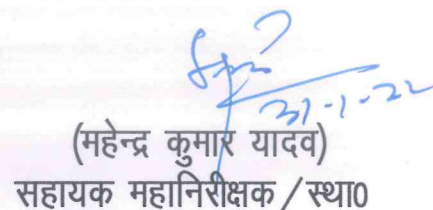 31-1-22
(महेन्द्र कुमार यादव)
सहायक महानिरीक्षक/स्था0